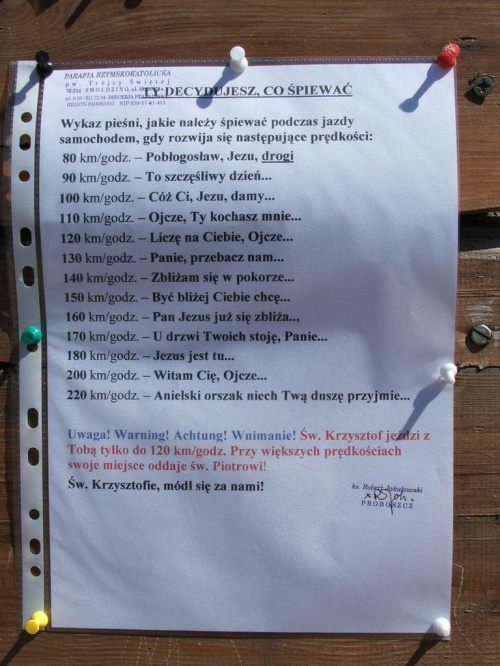 PARAFIA RZYMSKOKATOLICKA
p.w. Trójcy Świętej
TY DECYDUJESZ, CO ŚPIEWAĆ
Wykaz pieśni, jakie należy śpiewać podczas jazdy
samochodem, gdy rozwija się następujące prędkości:
80 km/godz. – Pobłogosław, Jezu, drogi
90 km/godz. – To szczęśliwy dzień...
100 km/godz. – Cóż Ci, Jezu, damy...
110 km/godz. – Ojcze, Ty kochasz mnie...
120 km/godz. – Liczę na Ciebie, Ojcze...
130 km/godz. – Panie, przebacz nam...
140 km/godz. – Zbliżam się w pokorze...
150 km/godz. – Być bliżej Ciebie chcę...
160 km/godz. – Pan Jezus już się zbliża..,
170 km/godz. – U drzwi Twoich stoję, Panie...
180 km/godz. – Jezus jest tu...
200 km/godz. – Witam Cię, Ojcze...
220 km/godz. – Anielski orszak niech Twą duszę przyjmie...
Uwaga! Warning! Achtung! Wnimanie! Św. Krzysztof jeździ z
Tobą tylko do 120 km/godz. Przy większych prędkościach
swoje miejsce oddaje św. Piotrowi!
Św. Krzysztofie, módl się za nami!
ks. Robert Jakubowski
PROBOSZCZ